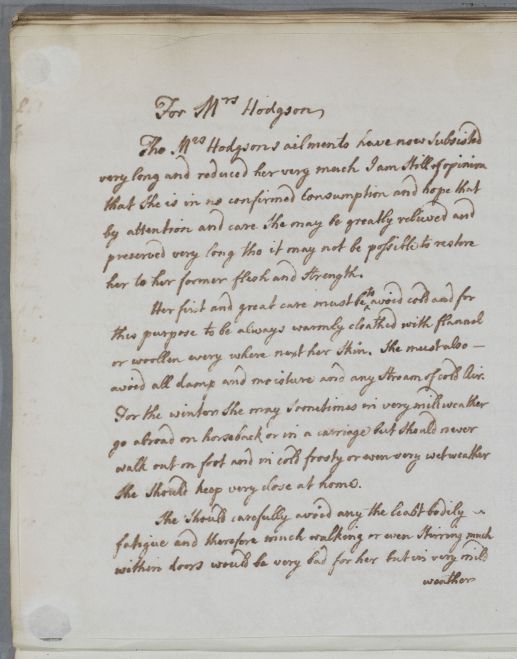 For Mrs Hodgson,
Tho Mrs Hodgsons ailments have now subsisted
very long and reduced her very much I am still of opinion
that she is in no confirmed Consumption and hope that
by attention and care she may be greatly relieved and
preserved very long tho it may not be possible to restore
her to her former flesh and strength.
Her first and great care must be to avoid cold and for
this purpose to be always warmly cloathed with flannel
or woollen every where next her skin. She must also —
avoid all damp and moisture and any stream of cold Air.
For the winter she may sometimes in very mild weather
go abroad on horseback or in a carriage but should never
walk out on foot and in cold frosty or even very wet weather
she should keep very close at home.
She should carefully avoid any the least bodily
fatigue and therefore much walking or even stirring much
within doors would be very bad for her but in very mild
weather